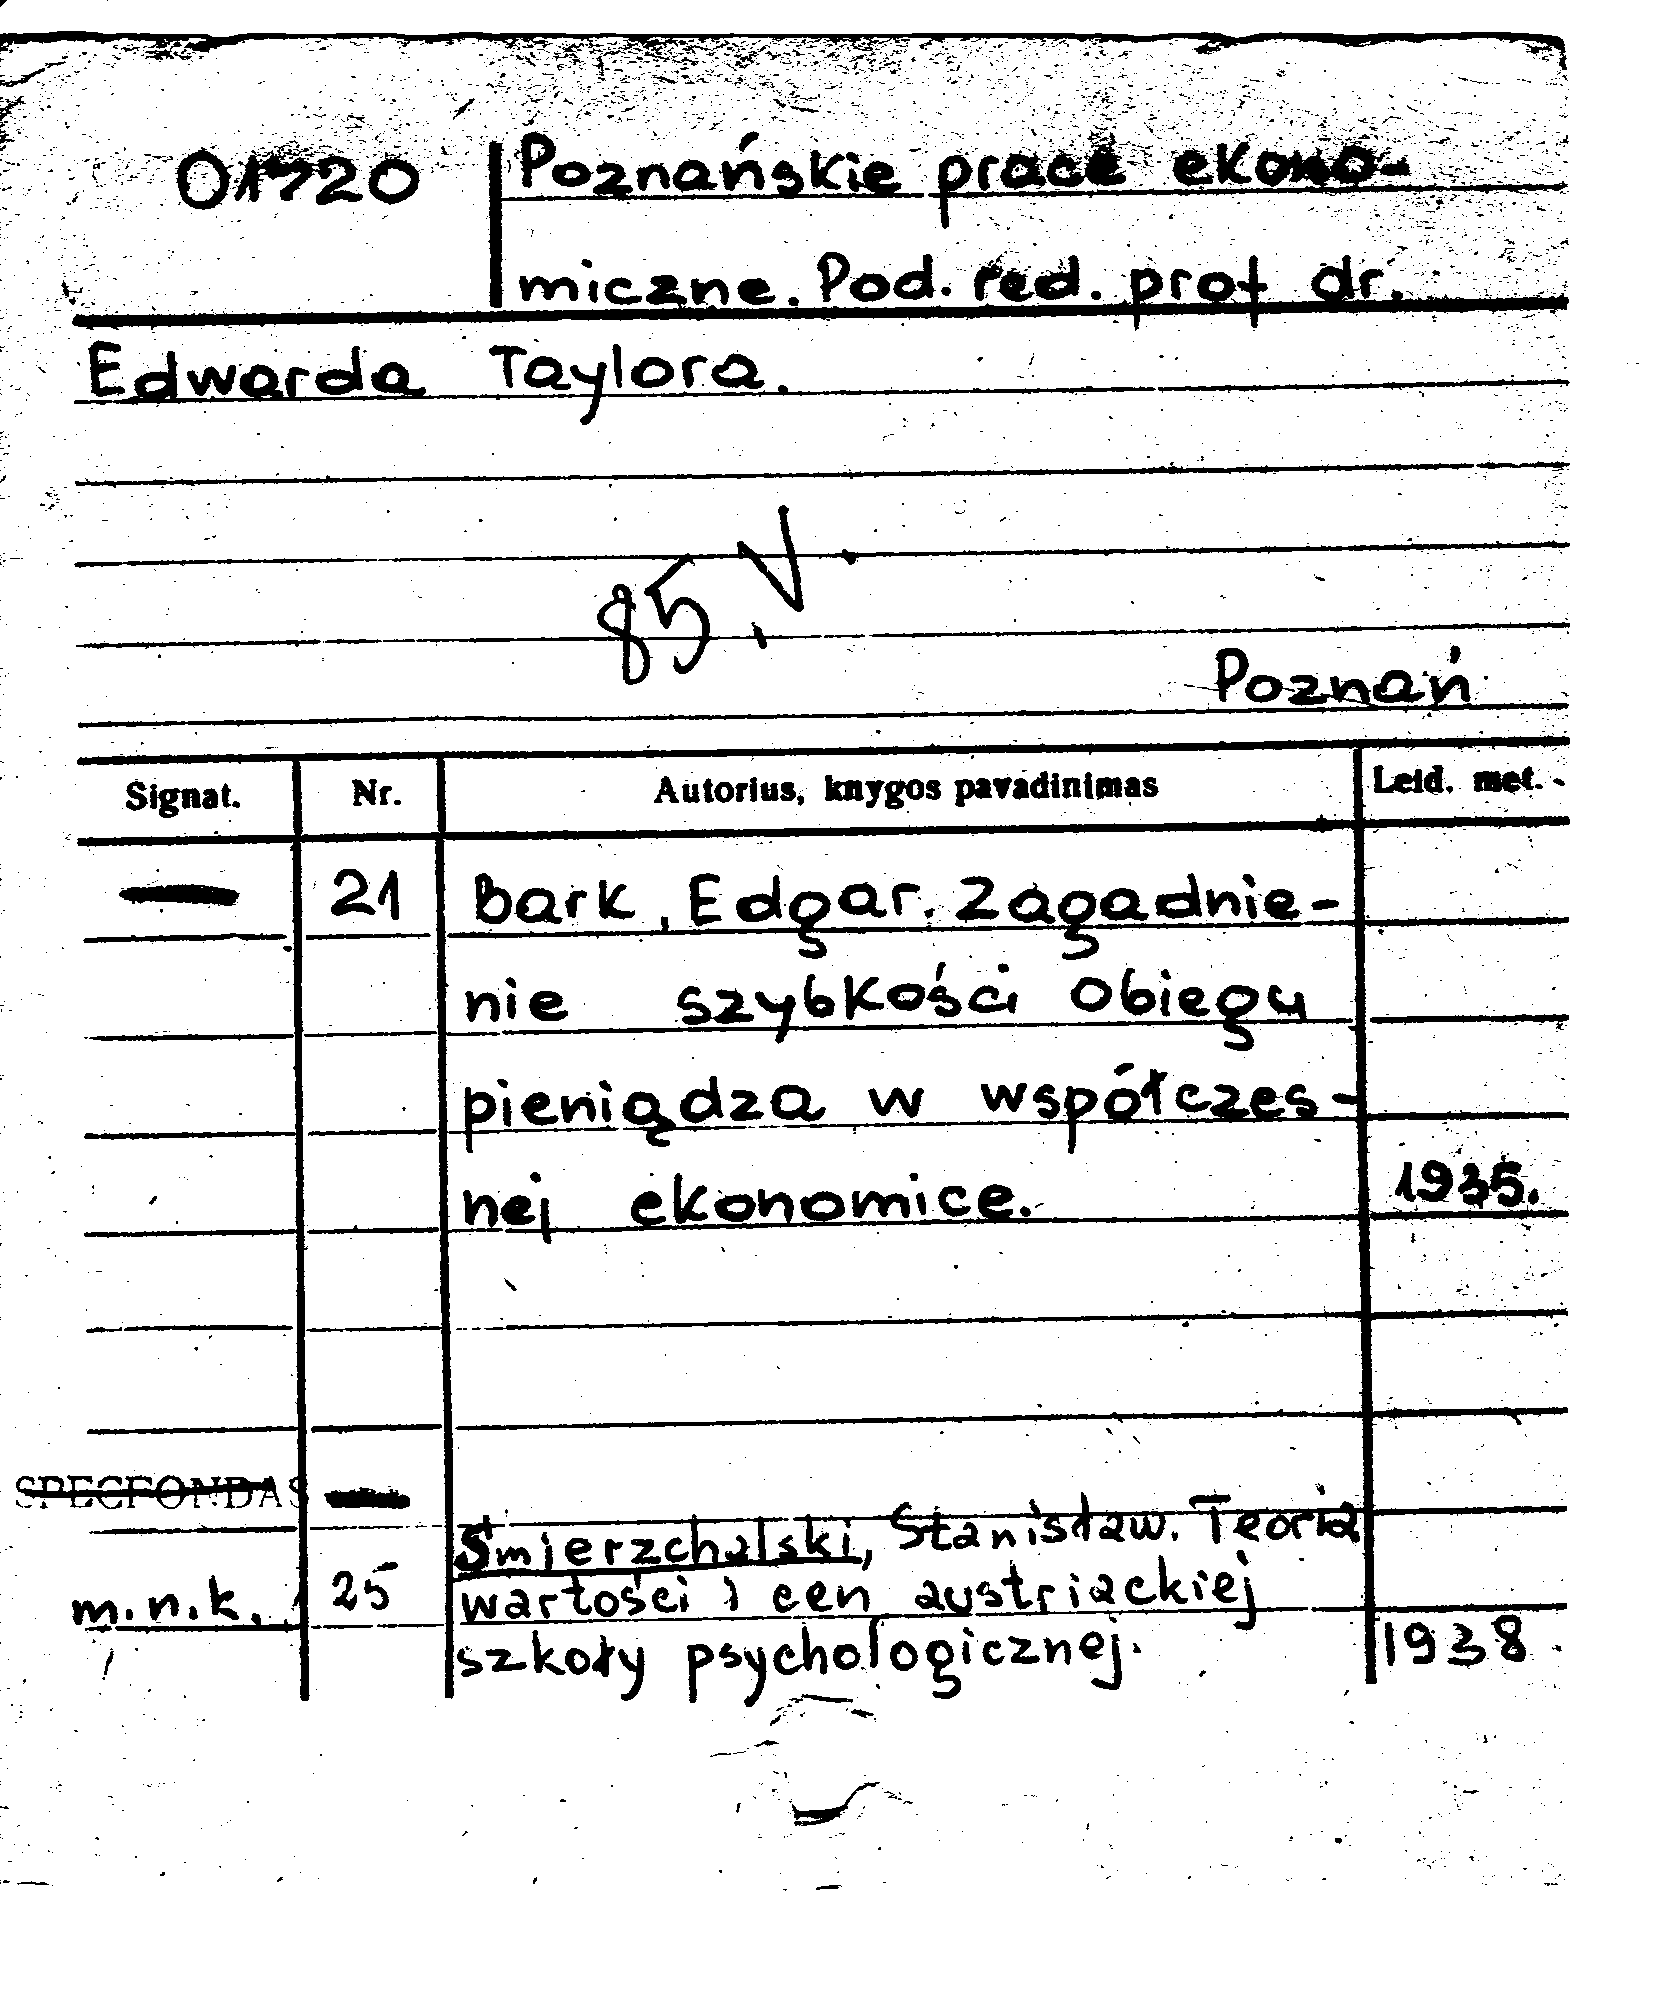 01720 Poznańskie prace ekono-
miczne. Pod. red. prof dr.
Edwarda Taylora.
85, V.
Poznań
Signat. Nr. Autorius, knygos pavadinimas Leid. met.
21 Bark, Edgar. Zagadnie-
nie szybkości obiegu
pieniądza w współczes-
nej ekonomice. 1935.
SPECFONDAS
Śmierzchalski, Stanisław. Teoria
m.n.k. 25 wartości i cen austriackiej
szkoły psychologicznej. 1938